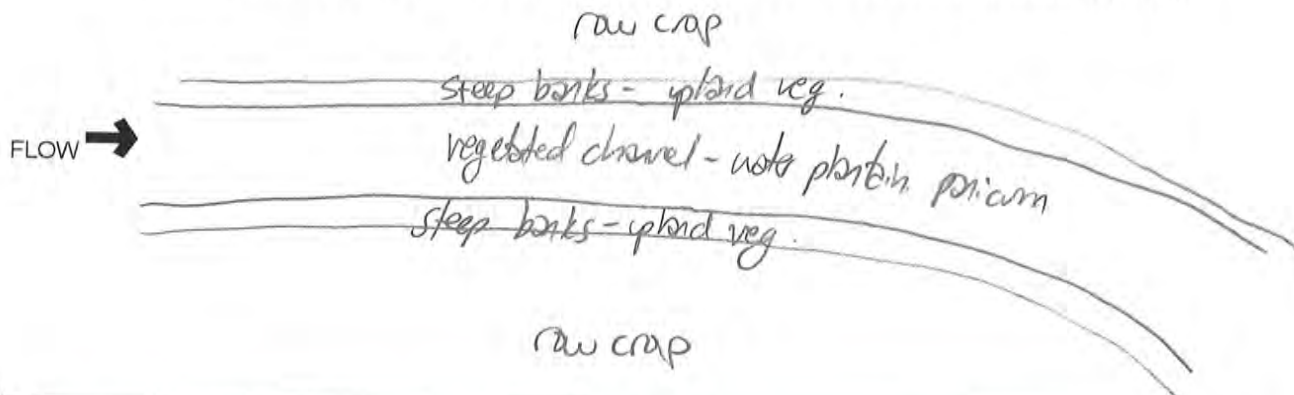 row crop
steep banks - upland veg.
FLOW
vegetated channel - water plantain panicum
steep banks - upland veg.
row crop